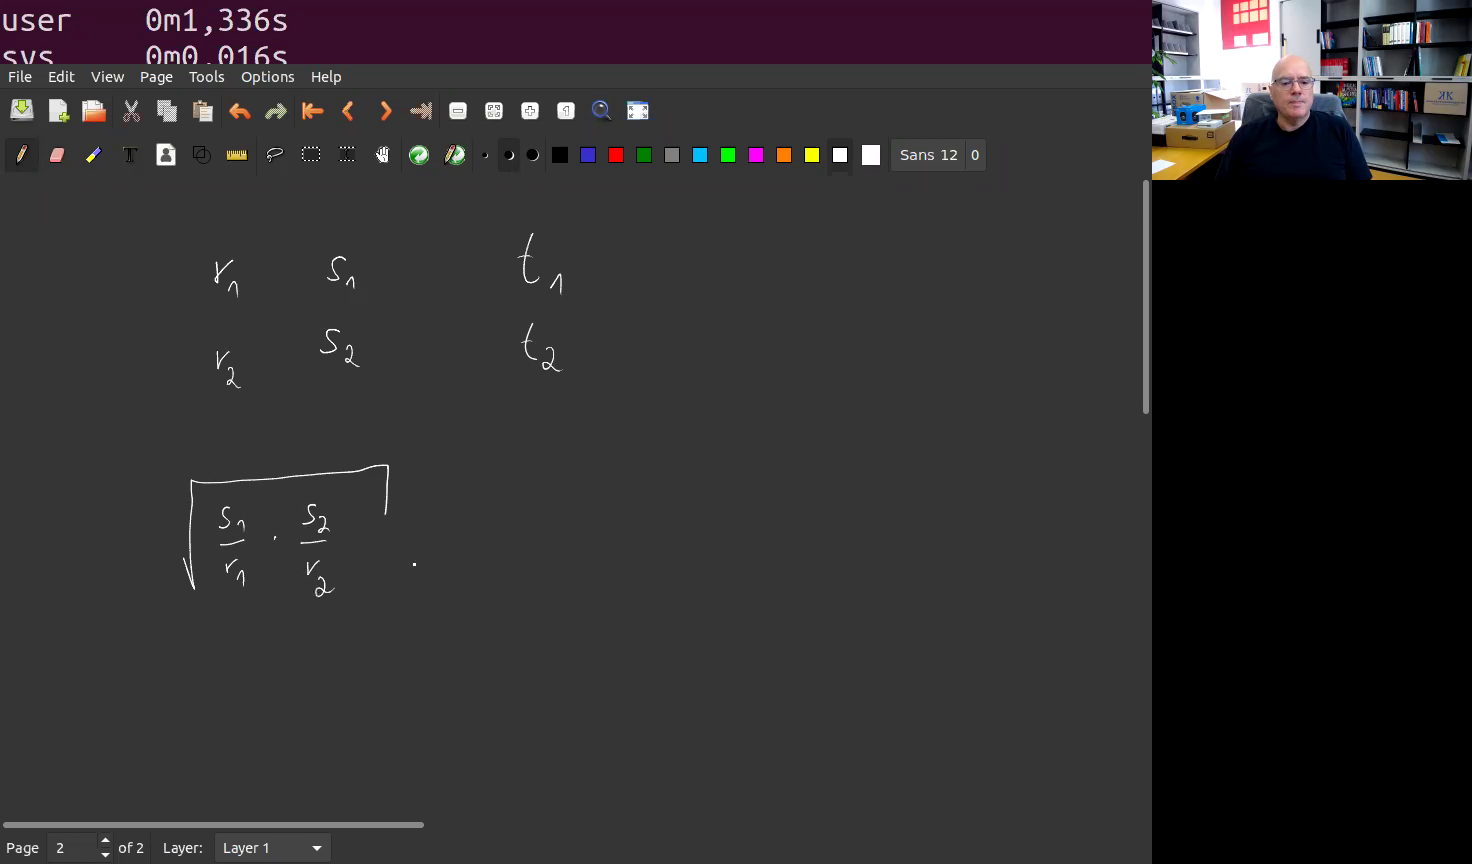 user 0m1,336s
sys 0m0,016s
File Edit View Page Tools Options Help
Sans 12 0
r₁ s₁ t₁
r₂ s₂ t₂
√(s₁/r₁ · s₂/r₂) ·
Page 2 of 2 Layer: Layer 1